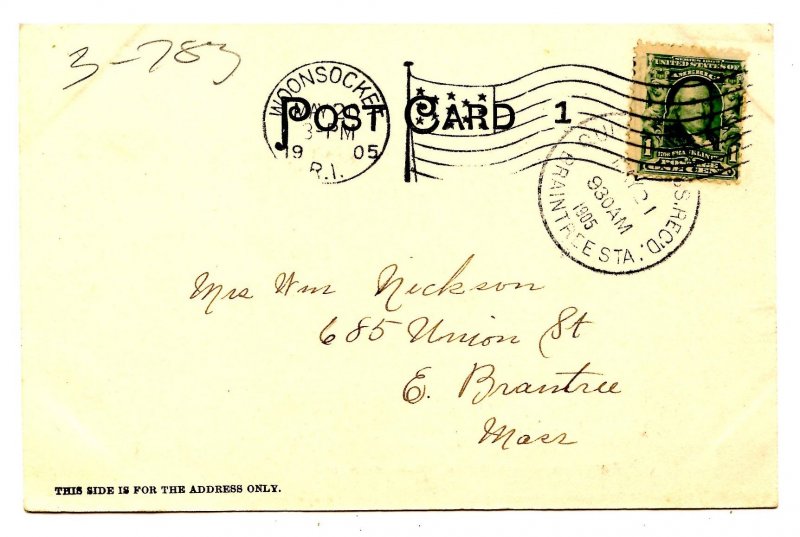 3-783
WOONSOCKET
3-PM
19 05
R.I.
POST CARD
1
SERIES 1902
UNITED STATES OF
1 FRANKLIN 1
ONE CENT
MAY 21
930AM
1905
BRAINTREE STA.
SS. REC'D.
Mrs Wm Nickson
685 Union St
E. Braintree
Mass
THIS SIDE IS FOR THE ADDRESS ONLY.